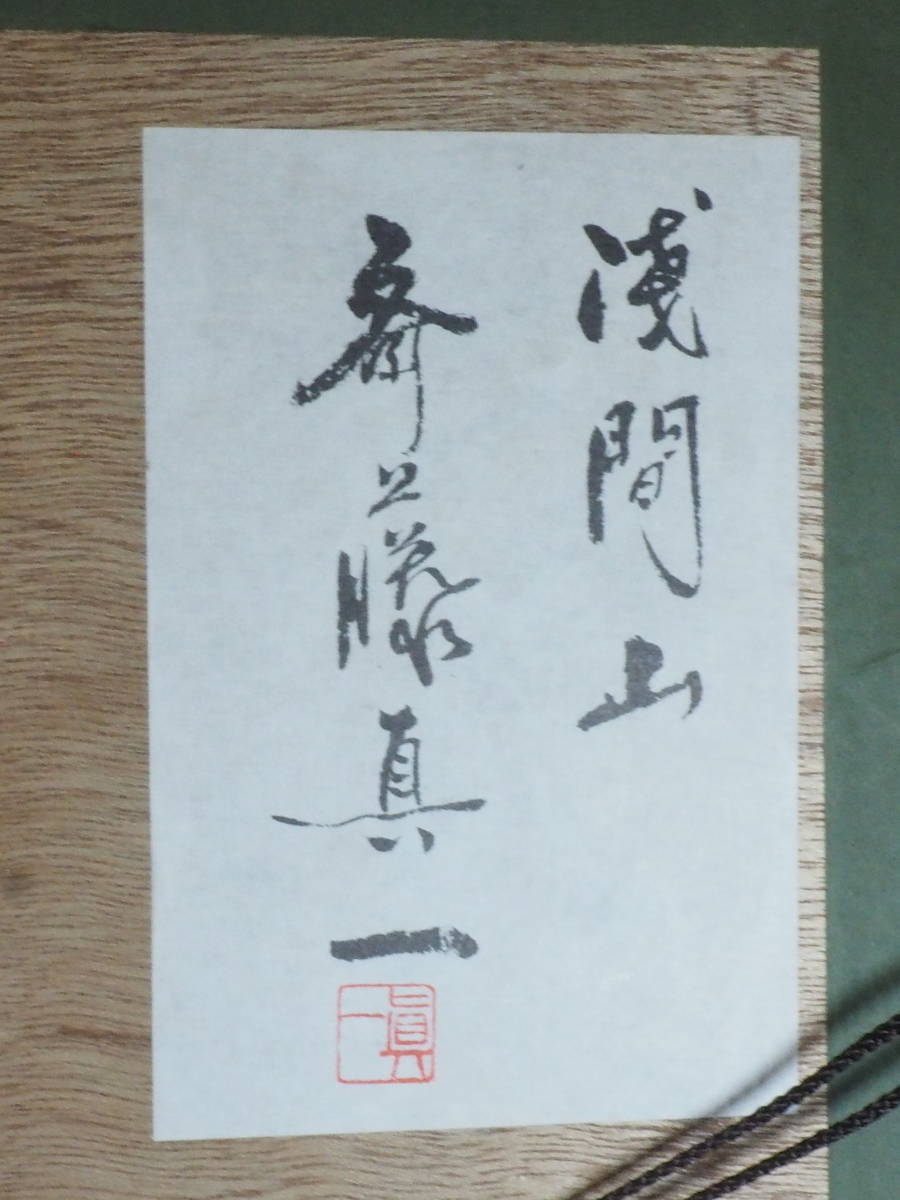 浅間山
斎藤真一
眞一